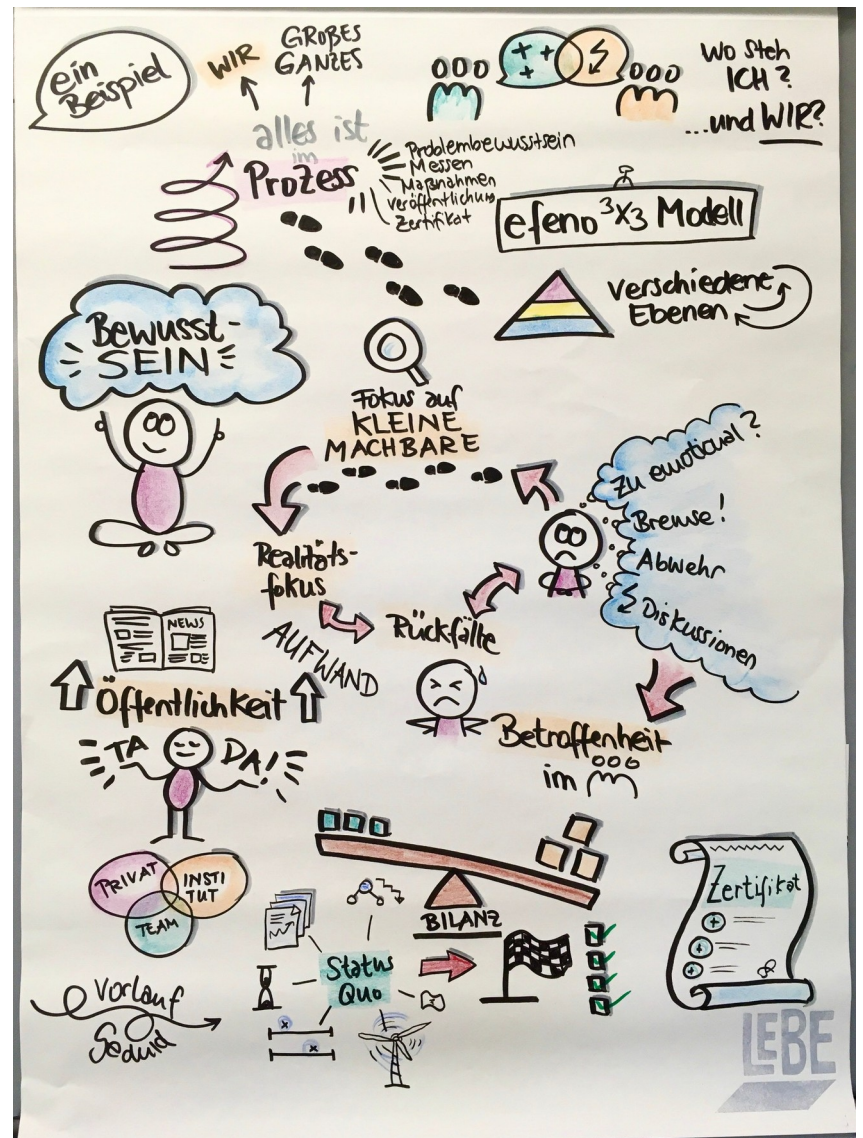 ein
Beispiel
WIR
GROẞES
GANZES
alles ist
im
Prozess
Problembewusstsein
Messen
Maßnahmen
Veröffentlichung
Zertifikat
Wo steh
ICH?
...und WIR?
efeno ³x3 Modell
Verschiedene
Ebenen
Bewusst-
SEIN
Fokus auf
KLEINE
MACHBARE
Zu emotional?
Bremse!
Abwehr
Diskussionen
Realitäts-
fokus
AUFWAND
Rückfälle
NEWS
Öffentlichkeit
TA DA!
Betroffenheit
im
PRIVAT
INSTI
TUT
TEAM
BILANZ
Status
Quo
Zertifikat
Vorlauf
Geduld
LEBE